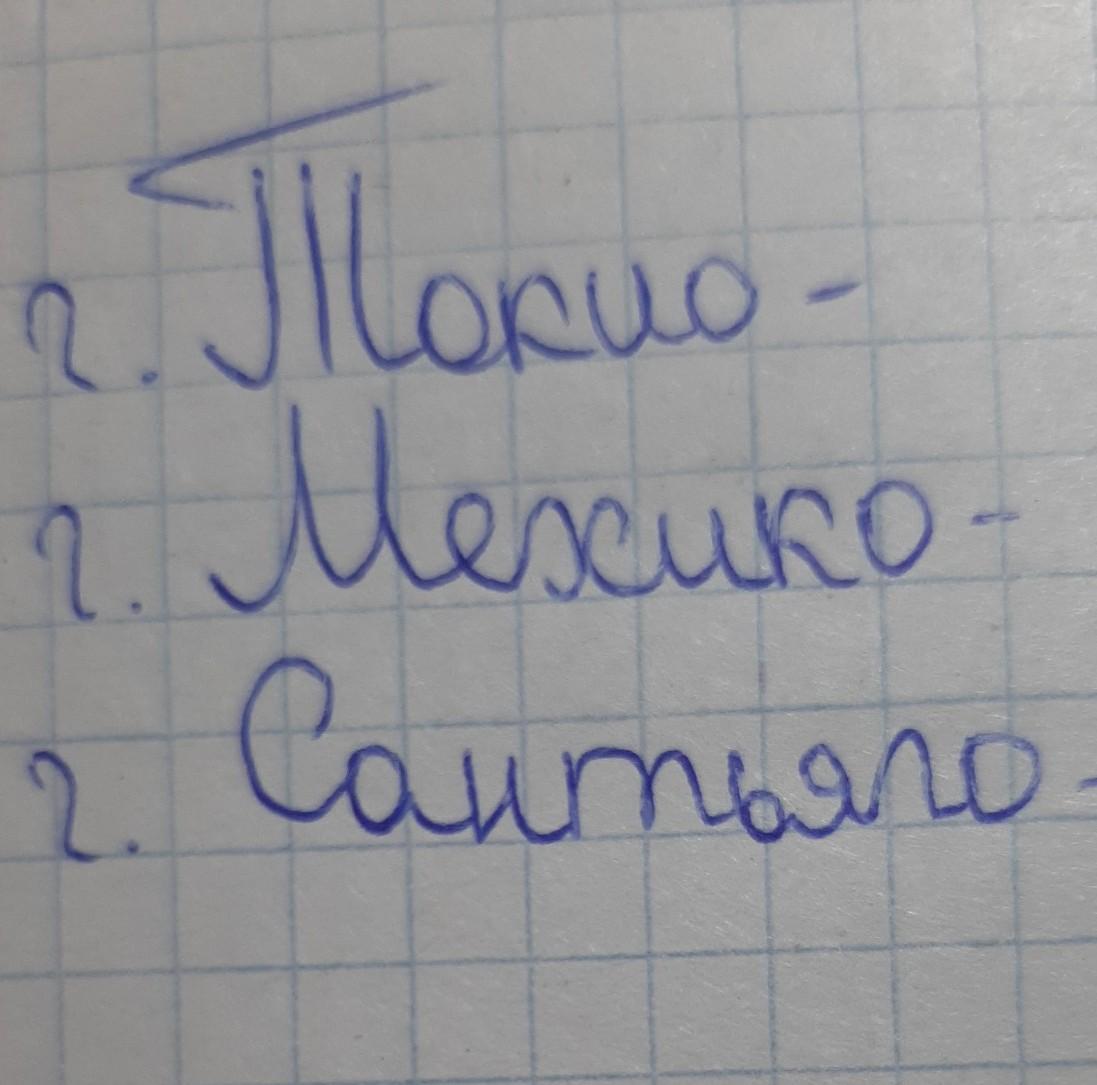 г. Токио -
г. Мехико -
г. Сантьяго -